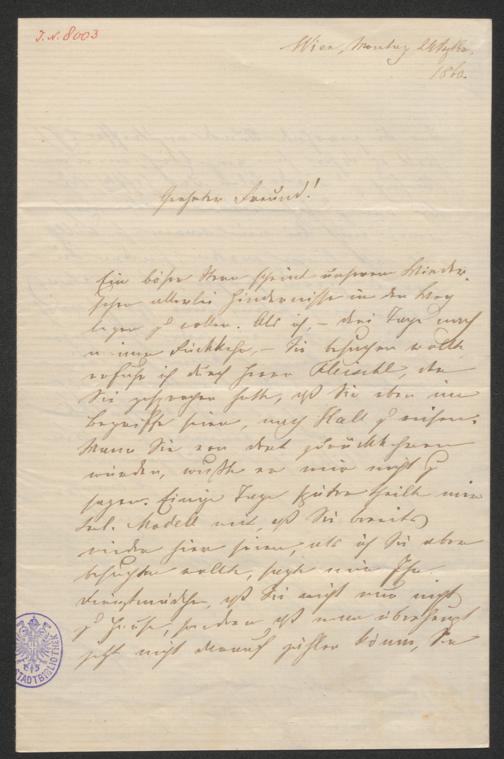 J. N. 8003
Wien, Montag 24 Septbr.
1860.
Geehrter Freund!
Ein böser Stern scheint unserem Wieder-
sehen allerlei Hindernisse in den Weg
legen zu wollen. Als ich, – drei Tage nach
meiner Rückkehr, – Sie besuchen wollte
erfuhr ich durch Herrn Kleischl, der
Sie gesprochen hatte, daß Sie eben im
Begriffe seien, nach Hall zu reisen.
Wann Sie von dort zurückkehren
würden, wußte er mir nicht zu
sagen. Einige Tage später theilte mir
Frl. Modell mit, daß Sie bereits
wieder hier seien, als ich Sie aber
besuchen wollte, sagte mir Ihr
Dienstmädchen, daß Sie nicht nur nicht
zu Hause, sondern daß man überhaupt
jetzt nicht darauf zählen könne, Sie
STADTBIBLIOTHEK